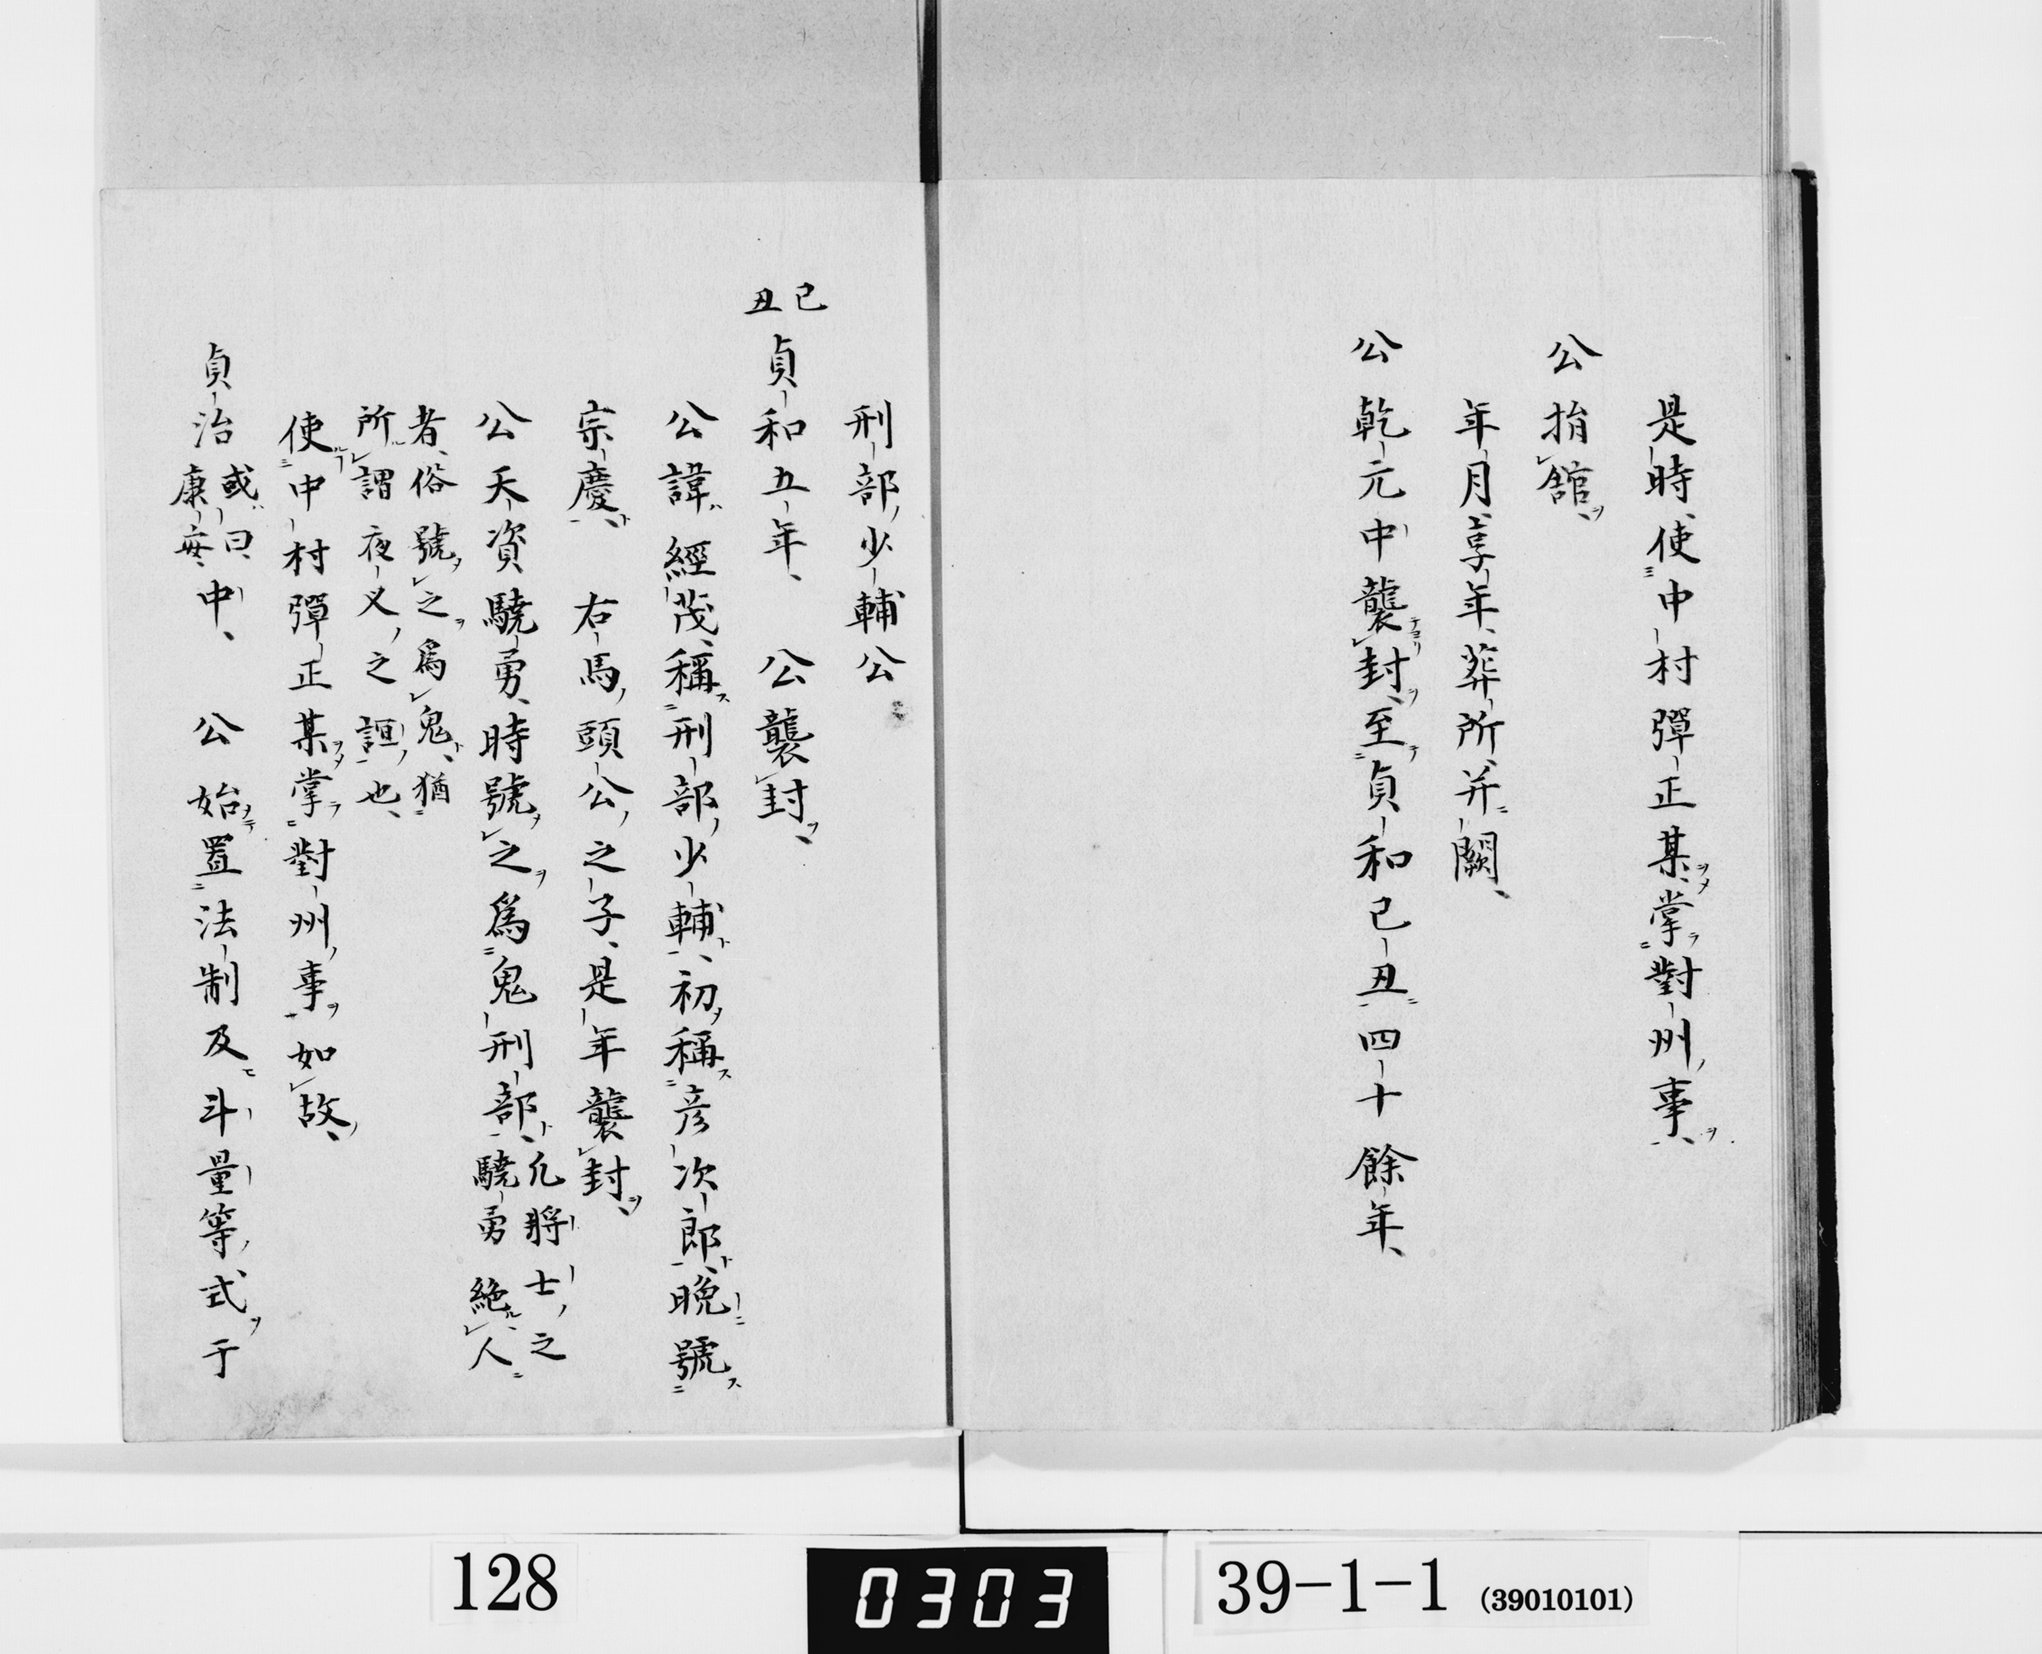 是時、使中村彈正某、掌對州事、
公捐舘、
年月、享年、葬所、并闕、
公乾元中襲封、至貞和己丑四十餘年、
刑部少輔公
己丑
貞和五年、公襲封、
公諱經茂、稱刑部少輔、初稱彦次郎、晩號
宗慶、右馬頭公之子、是年襲封、
公天資驍勇、時號之爲鬼刑部、凡將士之
驍勇絶人
者、俗號之爲鬼、猶
所謂夜叉之誼也、
使中村彈正某掌對州事如故、
貞治或曰、康安、中、公始置法制及斗量等式于
128
0303
39-1-1 (39010101)